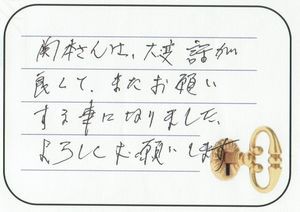 岡本さんは、大変 話が
良くて、またお願い
する事になりました、
よろしくお願いします